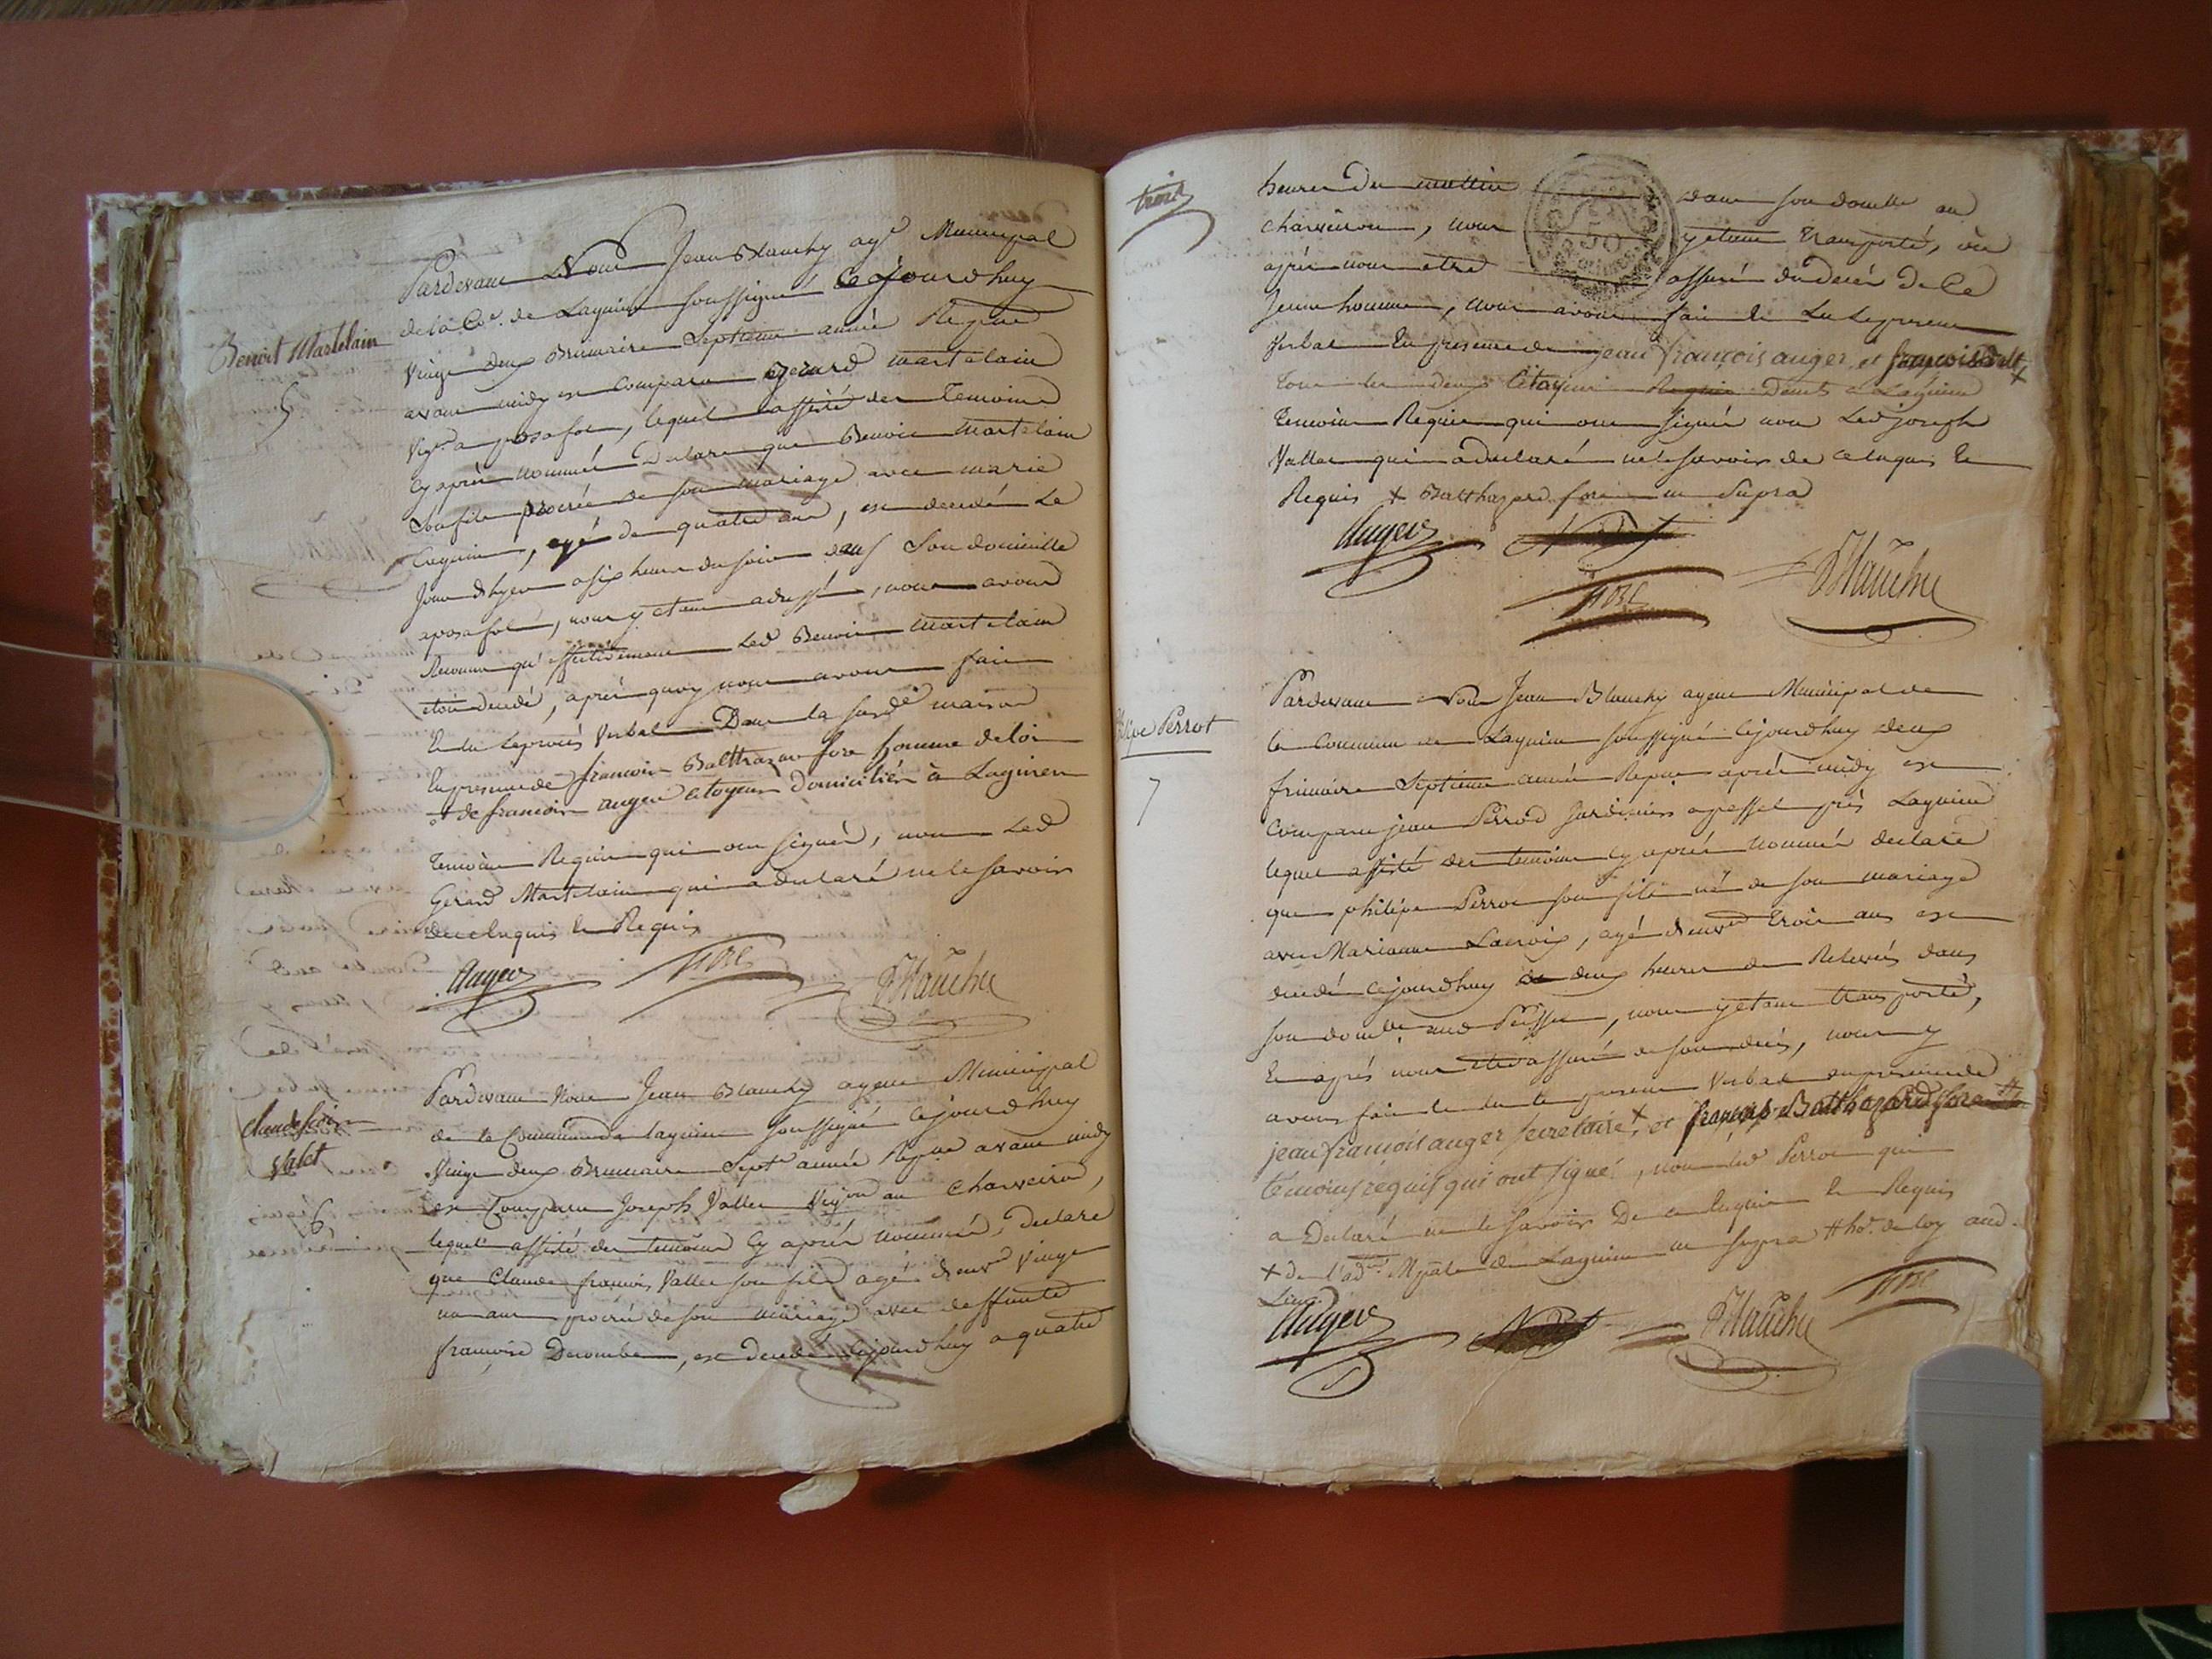 Benoit Martelain
5
Pardevant Nous Jean Blanchy agt Municipal
de la Coe. de Lagnieu soussigné Cejourdhuy
vingt deux Brumaire Septieme année Repne
avant midy est Comparu gerard martelain
Vign a posafol, lequel assisté des Temoins
Cy après nommés Declare que Benoit Martelain
Son fils procréé de son mariage avec marie
, agé de quatre ans, est decedé Le
Jour d'hyer a six heures du soir dans Son domicille
a posafol, nous y etant adressé, nous avons
Reconnu qu'effectivement Led Benoit Martelain
etoit decedé, après quoy nous avons fait
et lu le procès Verbal Dans la susde maison
En presence de francois Balthazar fore homme de loi
et de francois auger citoyens Domiciliés à Lagnieu
temoins Requis qui ont signés, non Led
Gerard Martelain qui a declaré ne le savoir
de ce enquis et Requis
Auger fore Blanchy
Claude fcois
Valet
6
Pardevant Nous Jean Blanchy agent Municipal
de la Commune de Lagnieu soussigné cejourdhuy
Vingt deux Brumaire Septe année Repne avant midy
est Comparu Joseph Vallet Vigron au Charveiron,
lequel assisté des temoins Cy après nommés, Declare
que Claude francois Vallet son fils agé d'envon Vingt
un ans procréé de son mariage avec deffunte
francoise Decombe, est decedé cejourdhuy a quatre
trois
heures du mattin dans son domlle au
charveiron, nous y etant transporté, où
après nous etre assuré du decés de Ce
Jeune homme, nous avons fait et lu le present
Verbal En presence de jean francois auger, et francois Balt +
tous les deux Citoyens Requis Demts a Lagnieu
temoins Requis qui ont signés non Led joseph
Vallet qui a declaré ne le savoir de ce enquis et
Requis + Balthazard fore ut Supra
Auger
fore Blanchy
philipe Perrot
7
Pardevant Nous Jean Blanchy agent Municipal de
la Commune de Lagnieu soussigné cejourdhuy deux
frimaire Septieme année Repne après midy est
comparu jean Perrod Jardinier a près Lagnieu
lequel assisté des temoins cy après nommés declare
que philipe Perrot son fils né de son mariage
avec Marianne Lacroix, agé d'envon trois ans est
decedé cejourdhuy a deux heures de Relevés dans
son domlle aud , nous y etant transporté,
et après nous etre assuré de son decés, nous y
avons fait et lu le present Verbal en presence de
jean francois auger secretaire +, et francois Balthazard fore #
temoins requis qui ont signé, non led Perrot qui
a Declaré ne le savoir De ce enquis et Requis
+ de l'adon Mpale de Lagnieu ut supra # he. de loy aud.
Lieu.
Auger Blanchy fore